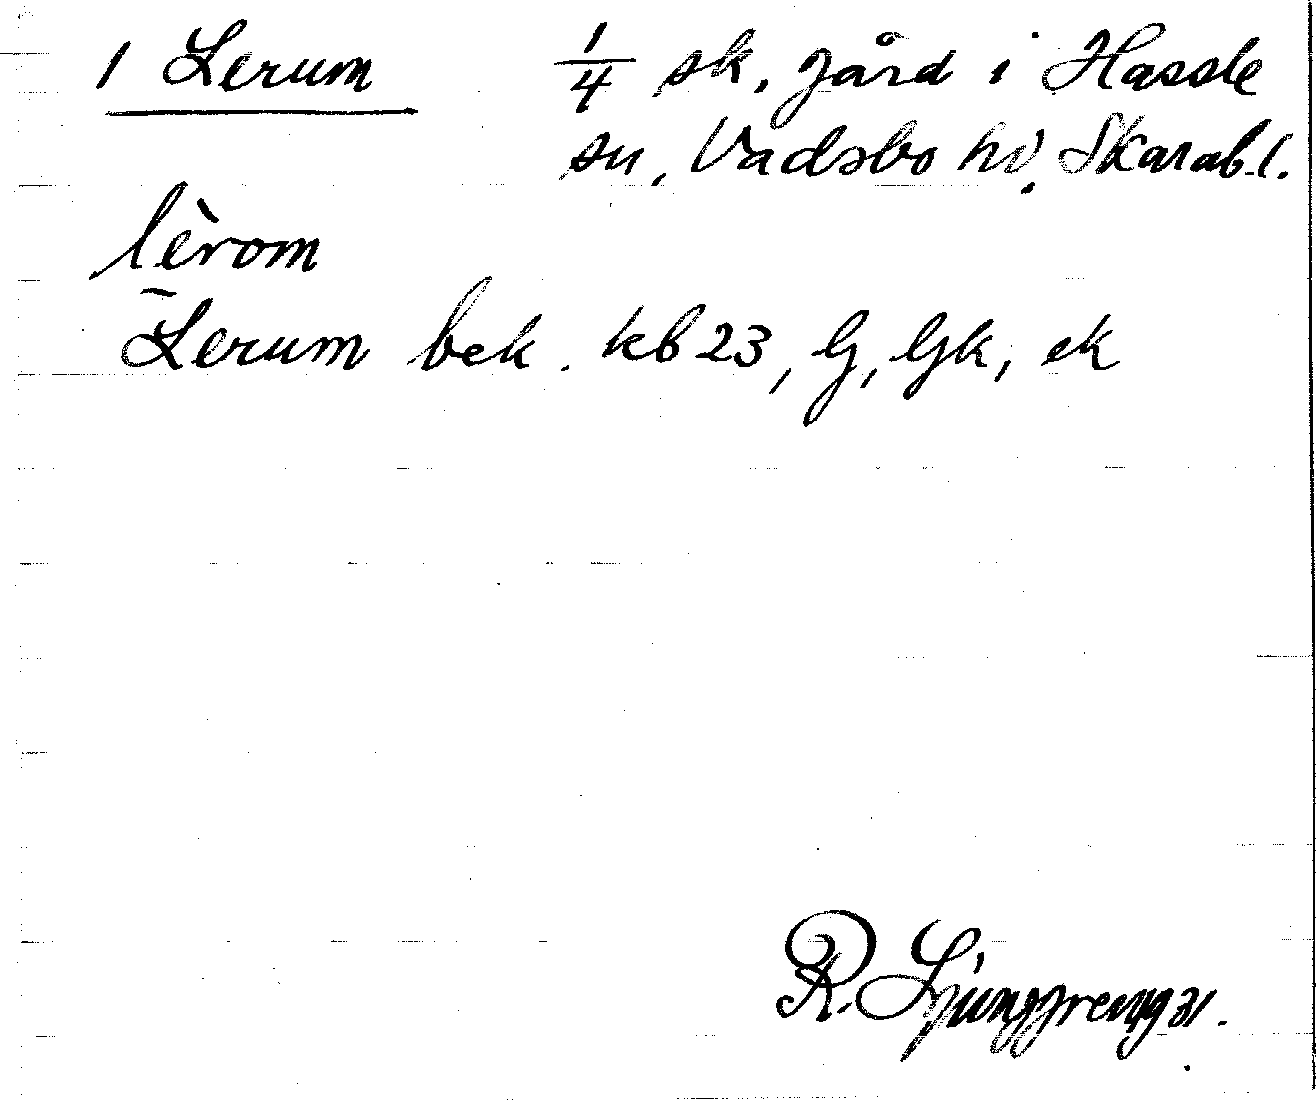 1 Lerum 1/4 sk. gård i Hassle
sn, Vadsbo hd, Skarab.l.
lèrom
Lerum bek. kb 23, G, Gk, ek
R. Ljunggren 1931.